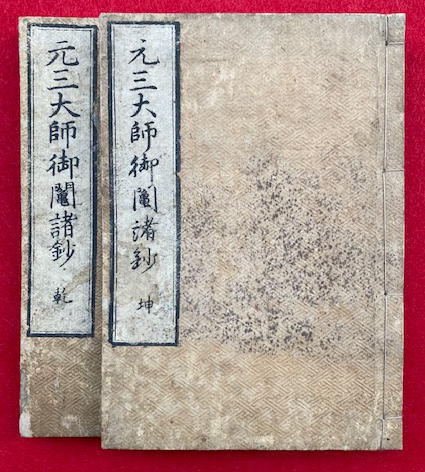 元三大師御鬮諸鈔 乾
元三大師御鬮諸鈔 坤